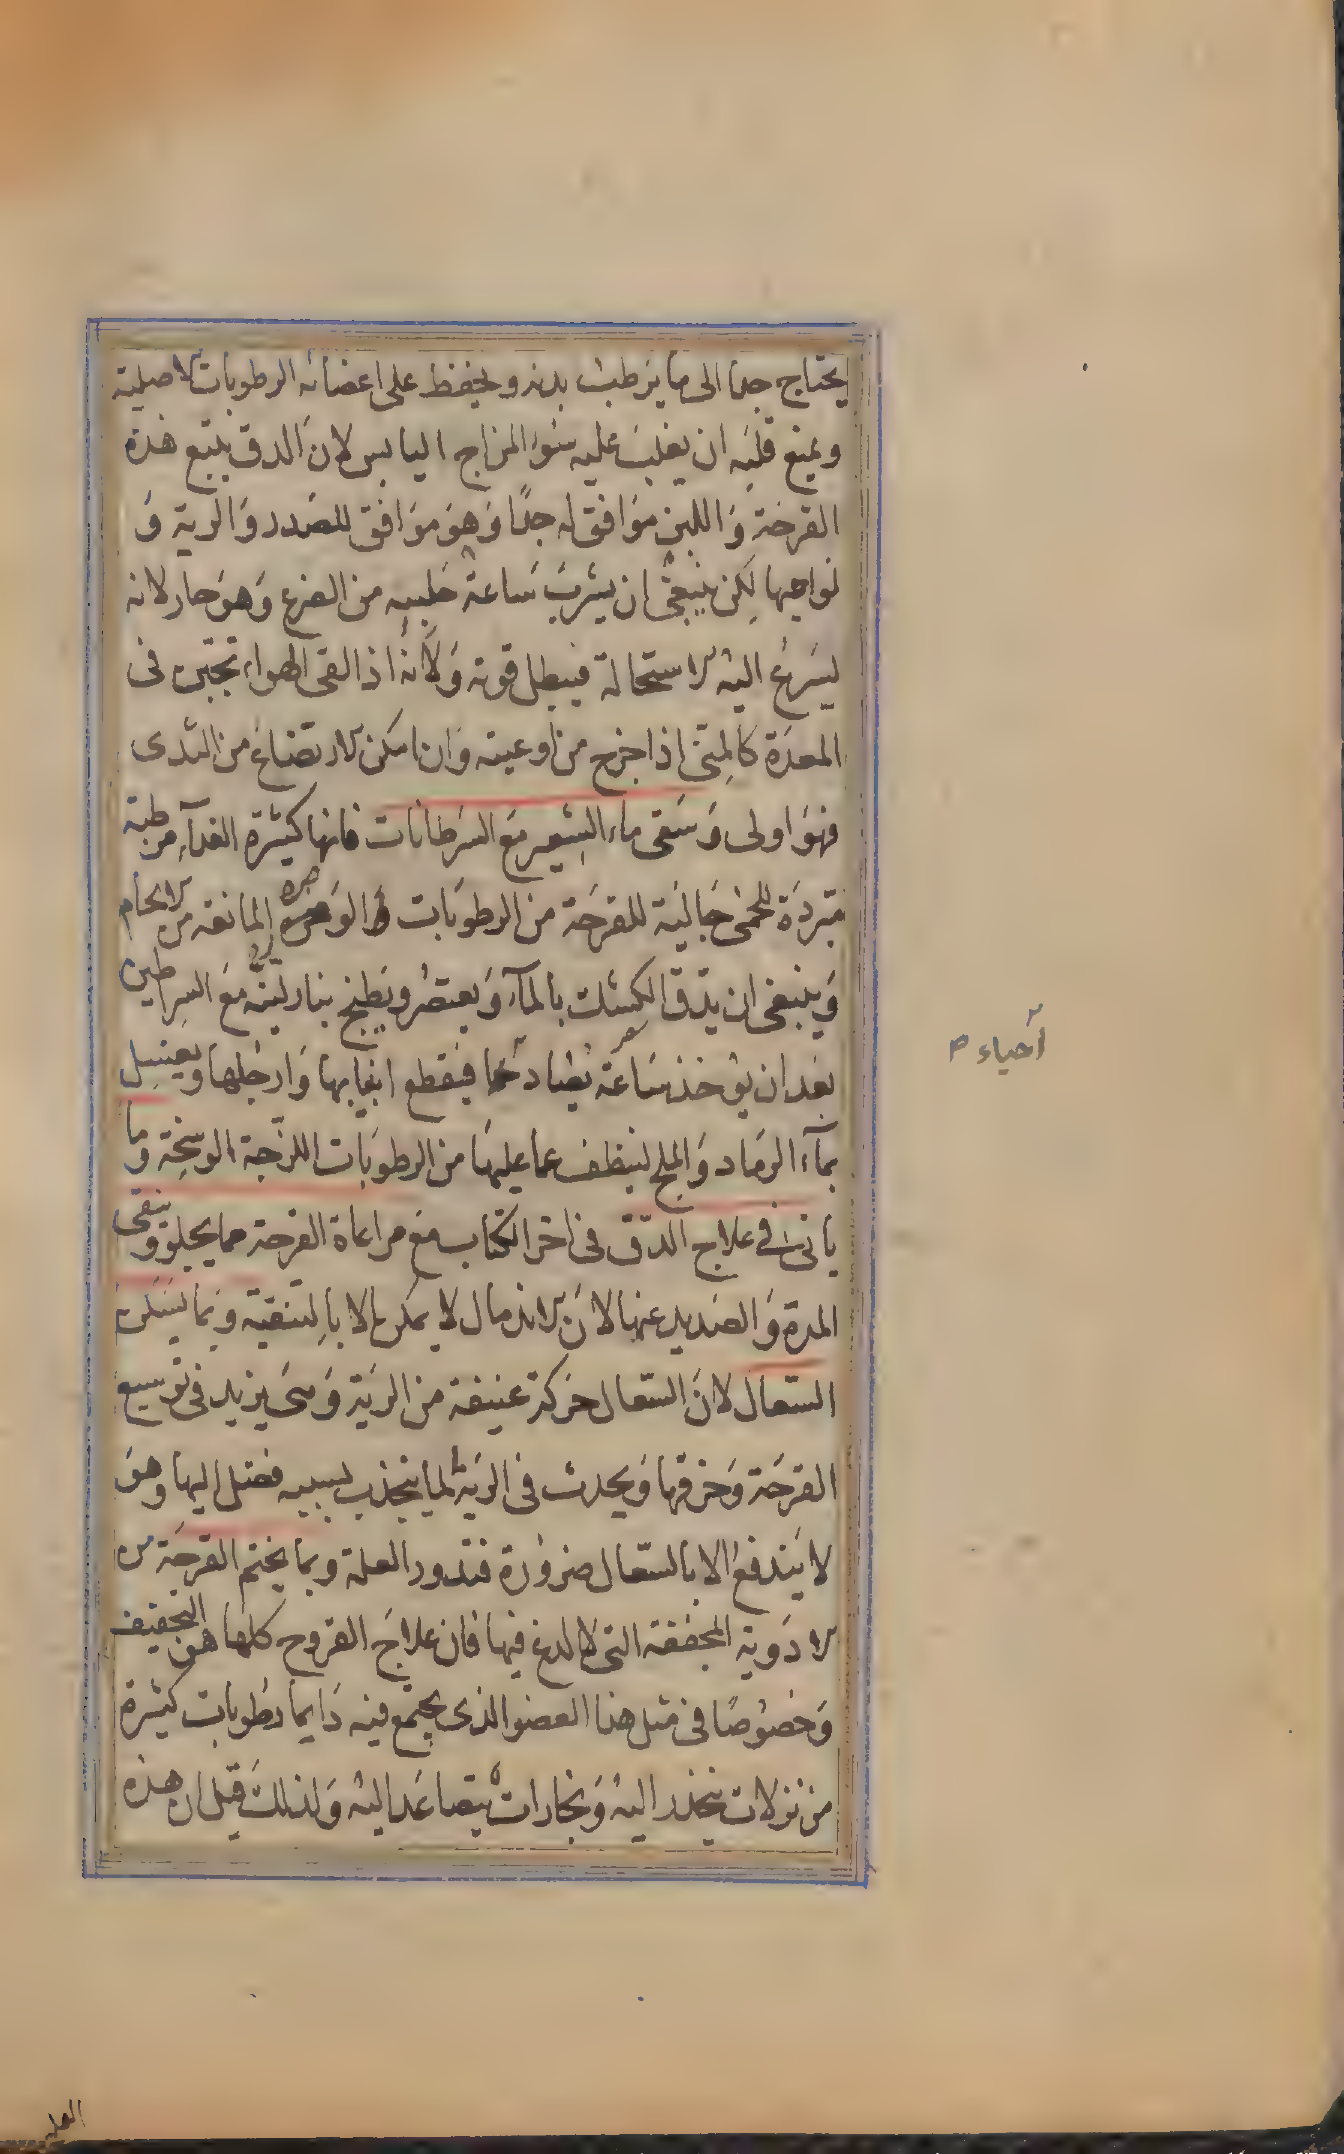 يحتاج جدا الى ما يرطب بدنه ويحفظ على اعضائه الرطوبات الاصلية
ويمنع قلبه ان يغلب عليه سوء المزاج اليابس لان الدق يتبع هذه
القرحة واللبن موافق له جدا وهو موافق للصدر والرية و
نواحيها لكن ينبغى ان يشرب ساعة حلبه من الضرع وهو حار لانه
يسرع اليه الاستحالة فيبطل قوته ولانه اذا لقى الهواء تجبن فى
المعدة كالمنى اذا خرج من اوعيته وان امكن الارتضاع من الثدى
فهو اولى وسقى ماء الشعير مع السرطانات فانها كثيرة الغذاء مرطبة
مبردة للحمى جالية للقرحة من الرطوبات والوضرة المانعة من الالحام
وينبغى ان يدق الكشك بالماء ويعتصر ويطبخ بنار لينة مع السراطين
بعد ان يؤخذ ساعة يصاد فيقطع انيابها وارجلها ويغسل
بماء الرماد والملح لينظف عما عليها من الرطوبات اللزجة الوسخة وما
ياتى فى علاج الدق فى اخر الكتاب مع مراعاة القرحة مما يجلو وينقى
المدة والصديد عنها لان الاندمال لا يمكن الا بالتنقية وبما يسكن
السعال لان السعال حركة عنيفة من الرية وهى يزيد فى توسيع
القرحة وخرقها ويحدث فى الرية لما ينجذب بسببه فضل اليها وهو
لا يندفع الا بالسعال ضرورة فتدور العلة وبما يختم القرحة من
الادوية المجففة التى لا لدغ فيها فان علاج القروح كلها هو التجفيف
وخصوصا فى مثل هذا العضو الذى يجتمع فيه دايما رطوبات كثيرة
من نزلات ينحدر اليه وبخارات يتصاعد اليه ولذلك قيل ان هذه
احياء ص